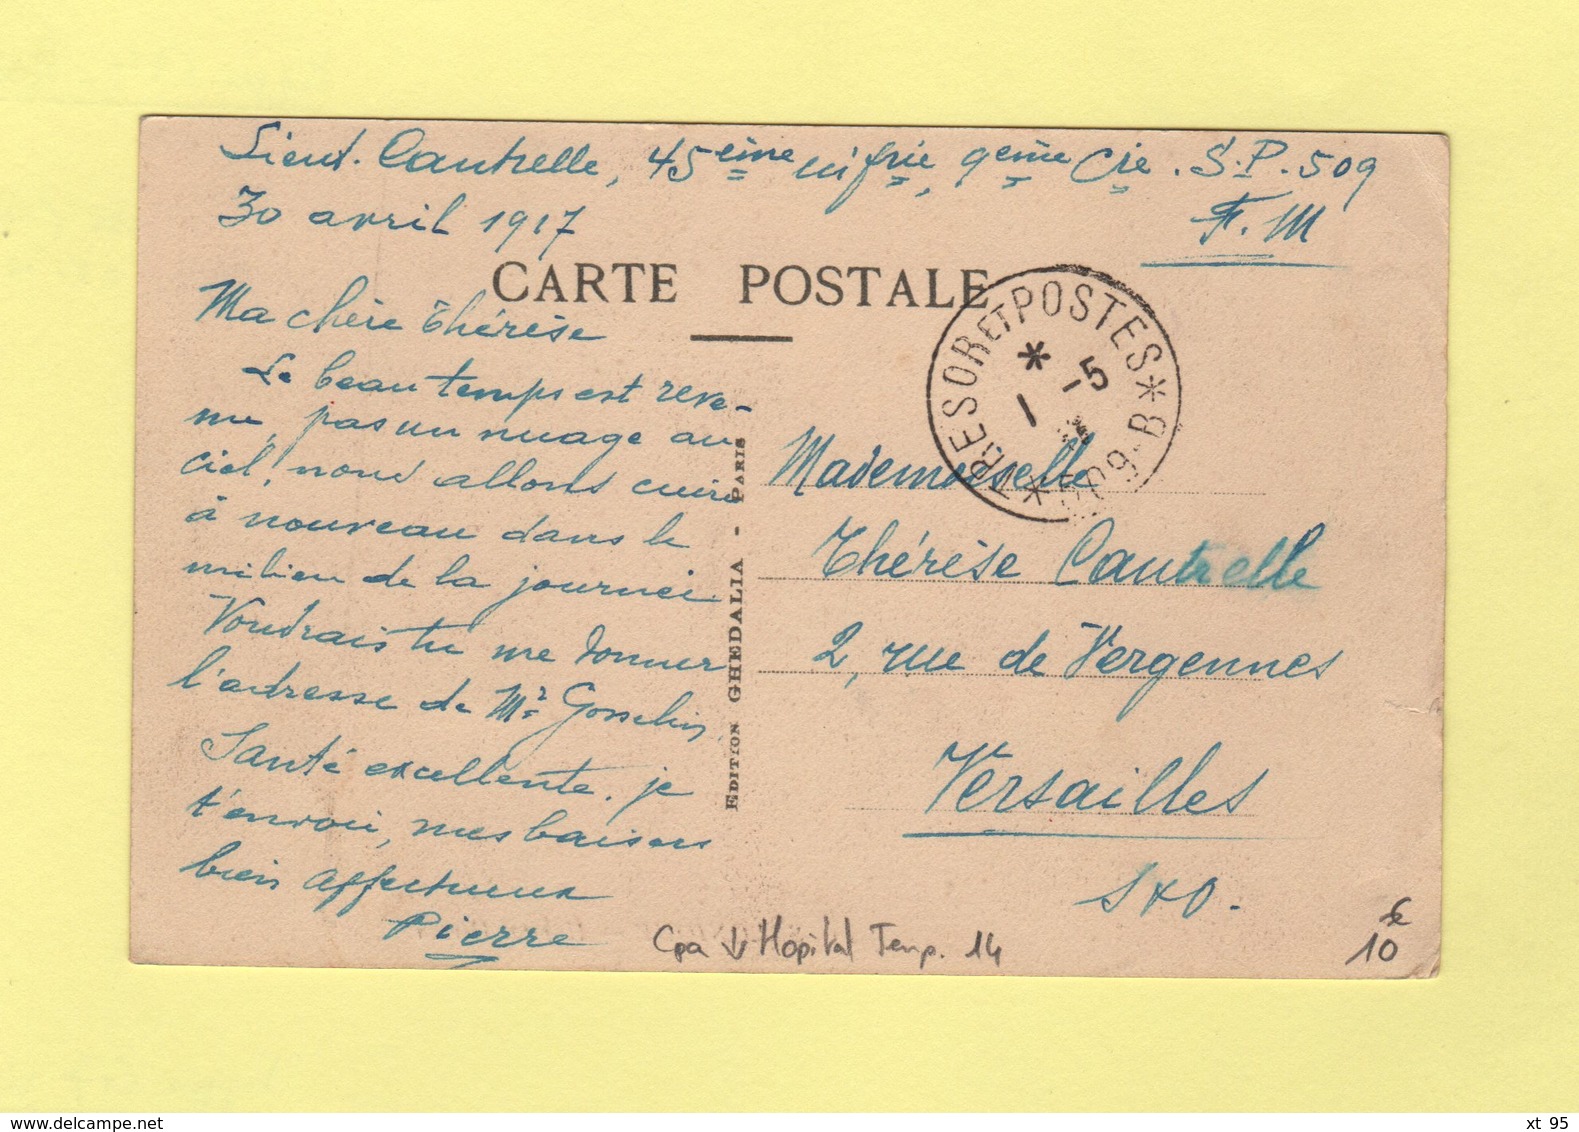 Lieut. Cantrelle, 45ème infrie, 9ème Cie. S.P. 509
30 avril 1917
F.M
CARTE POSTALE
Ma chère Thérèse
Le beau temps est reve-
nu, pas un nuage au
ciel, nous allons cuire
à nouveau dans le
milieu de la journée
Voudrais tu me donner
l'adresse de Mr Gosselin,
Santé excellente. je
t'envoie, mes baisers
bien affectueux
Pierre
EDITION GHEDALIA - PARIS
TRESOR ET POSTES * 509-B *
* 1 -5
Mademoiselle
Thérèse Cantrelle
2, rue de Vergennes
Versailles
S&O.
Cpa Hopital Temp. 14
€
10
delcampe.net
xt 95